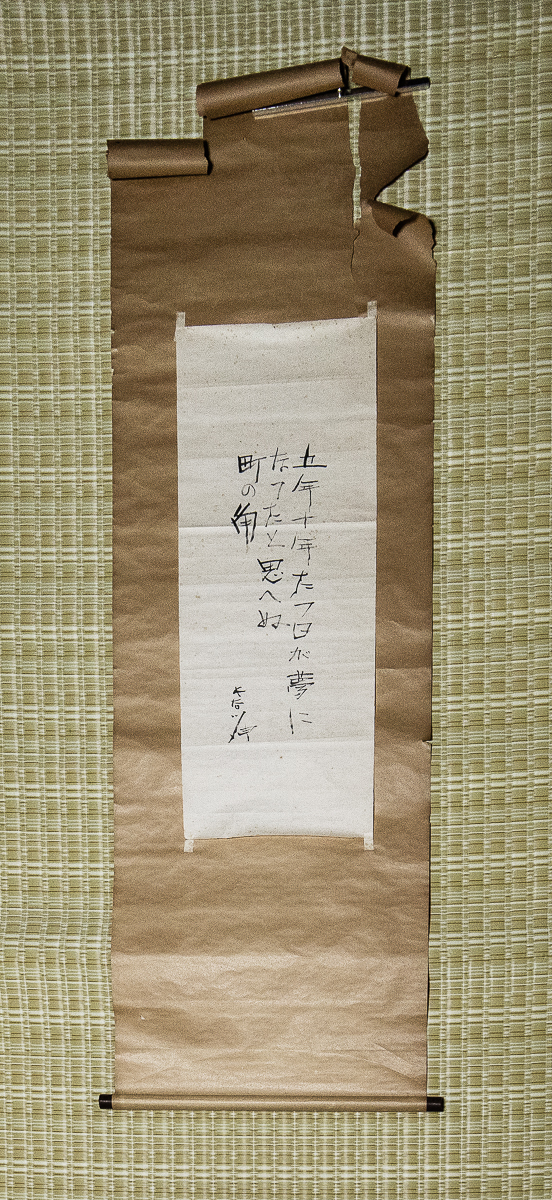 五年十年たつ日が夢に
なつたと思へぬ
町の角